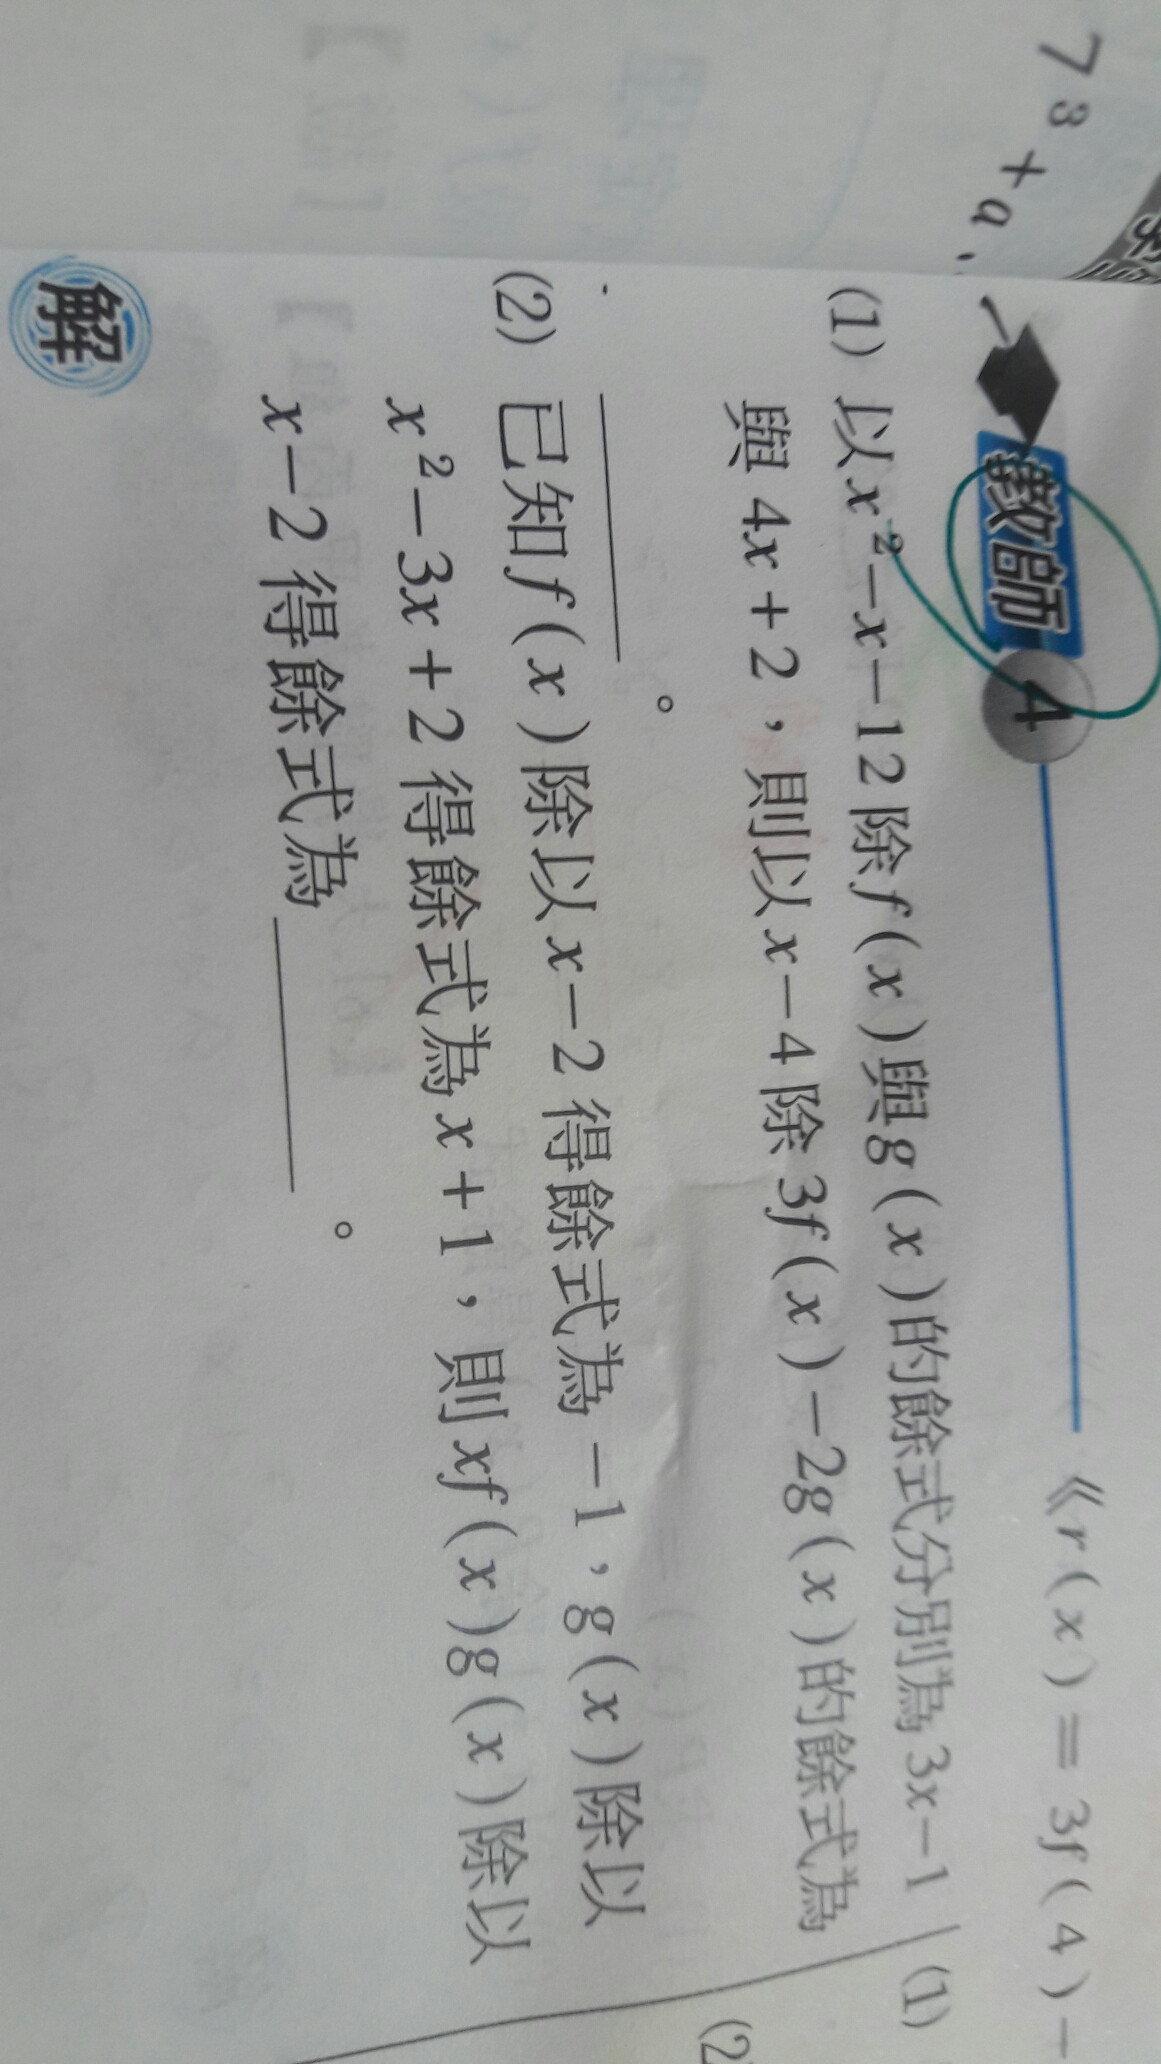 7³+a
教師 4
《r(x)=3f(4)-
(1) 以x²-x-12除f(x)與g(x)的餘式分別為3x-1
與4x+2,則以x-4除3f(x)-2g(x)的餘式為
________。
(2) 已知f(x)除以x-2得餘式為-1,g(x)除以
x²-3x+2得餘式為x+1,則xf(x)g(x)除以
x-2得餘式為________。
解
(1)
(2